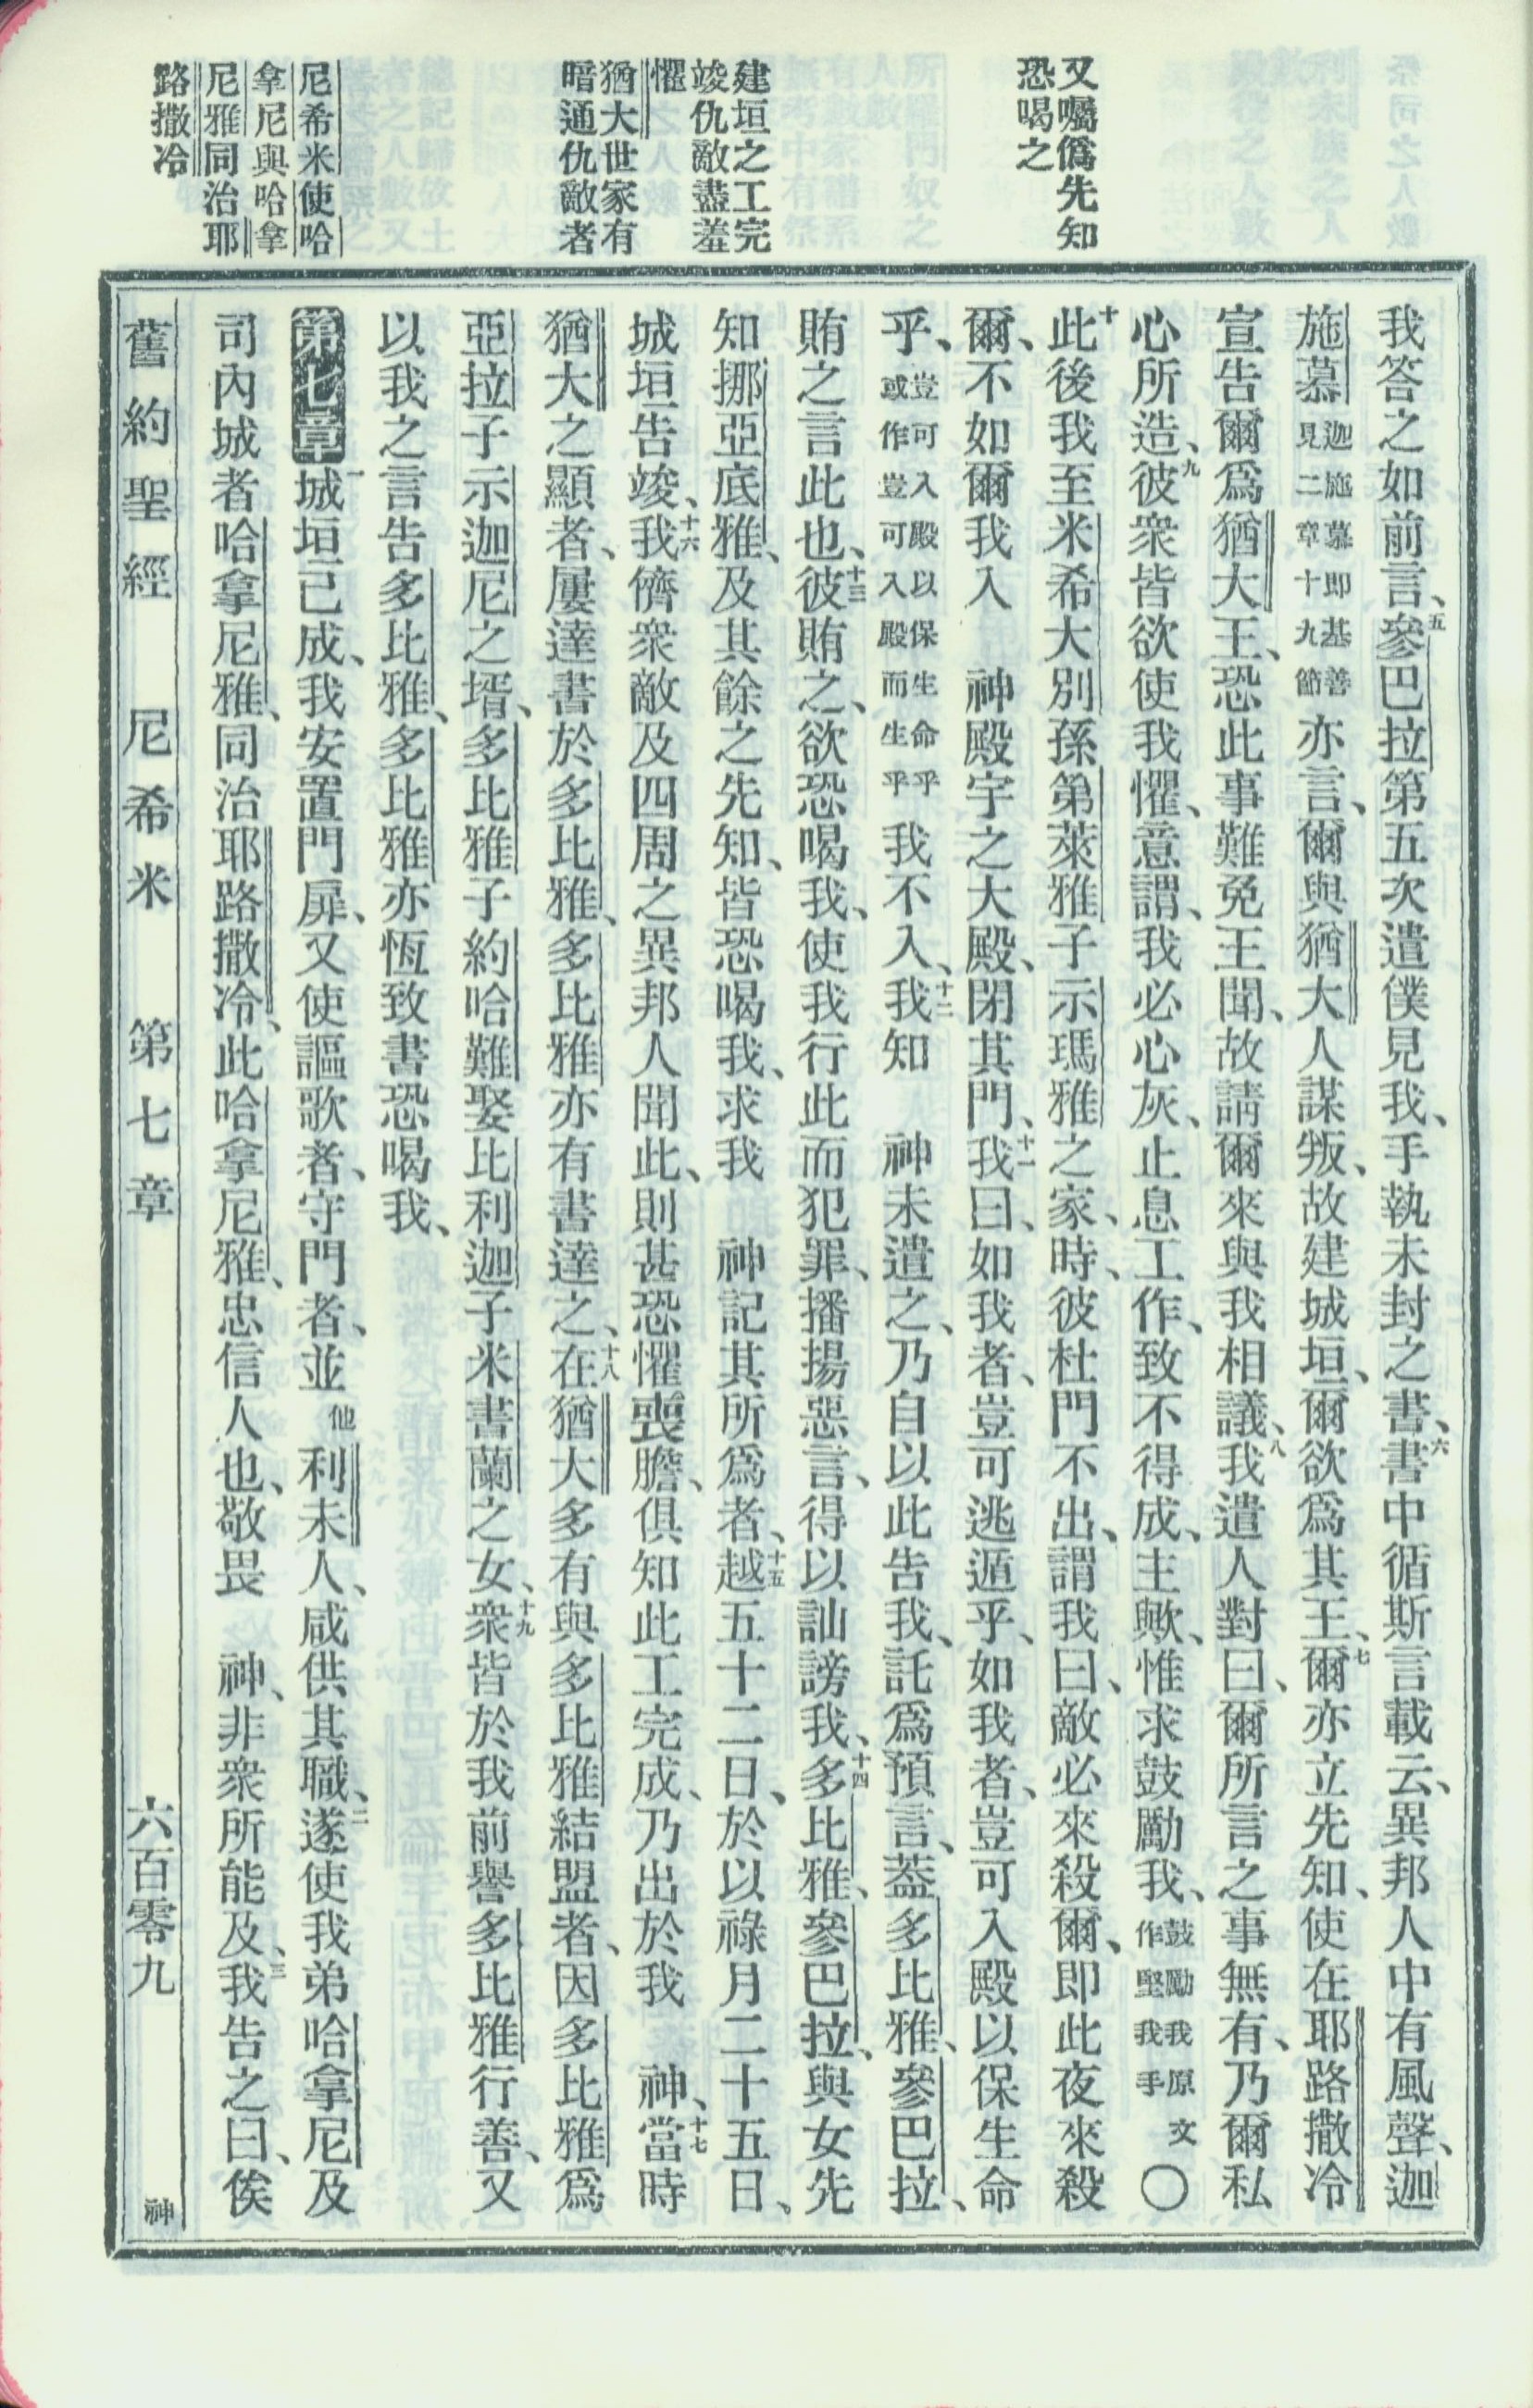 又囑僞先知
恐喝之
建垣之工完
竣仇敵盡羞
懼
猶大世家有
暗通仇敵者
尼希米使哈
拿尼與哈拿
尼雅同治耶
路撒冷
我答之如前言、五參巴拉第五次遣僕見我、手執未封之書、六書中循斯言載云、異邦人中有風聲、迦
施慕迦施慕即基善見二章十九節亦言、爾與猶大人謀叛、故建城垣、爾欲爲其王、七爾亦立先知、使在耶路撒冷
宣告爾爲猶大王、恐此事難免王聞、故請爾來與我相議、八我遣人對曰、爾所言之事無有、乃爾私
心所造、九彼衆皆欲使我懼、意謂、我必心灰、止息工作、致不得成、主歟、惟求鼓勵我、鼓勵我原文作堅我手〇
十此後我至米希大別孫第萊雅子示瑪雅之家、時、彼杜門不出、謂我曰、敵必來殺爾、即此夜來殺
爾、不如爾我入　神殿宇之大殿、閉其門、十一我曰、如我者、豈可逃遁乎、如我者、豈可入殿以保生命
乎、豈可入殿以保生命乎或作豈可入殿而生乎我不入、十二我知　神未遣之、乃自以此告我、託爲預言、蓋多比雅、參巴拉、
賄之言此也、十三彼賄之、欲恐喝我、使我行此而犯罪、播揚惡言、得以訕謗我、十四多比雅、參巴拉、與女先
知挪亞底雅、及其餘之先知、皆恐喝我、求我　神記其所爲者、十五越五十二日、於以祿月二十五日、
城垣告竣、十六我儕衆敵及四周之異邦人聞此、則甚恐懼喪膽、俱知此工完成、乃出於我　神、十七當時
猶大之顯者、屢達書於多比雅、多比雅亦有書達之、十八在猶大多有與多比雅結盟者、因多比雅爲
亞拉子示迦尼之壻、多比雅子約哈難娶比利迦子米書蘭之女、十九衆皆於我前譽多比雅行善、又
以我之言告多比雅、多比雅亦恆致書恐喝我、
第七章一城垣已成、我安置門扉、又使謳歌者、守門者、並他利未人、咸供其職、二遂使我弟哈拿尼及
司內城者哈拿尼雅、同治耶路撒冷、此哈拿尼雅、忠信人也、敬畏　神、非衆所能及、三我告之曰、俟
舊約聖經　尼希米　第七章　六百零九　神